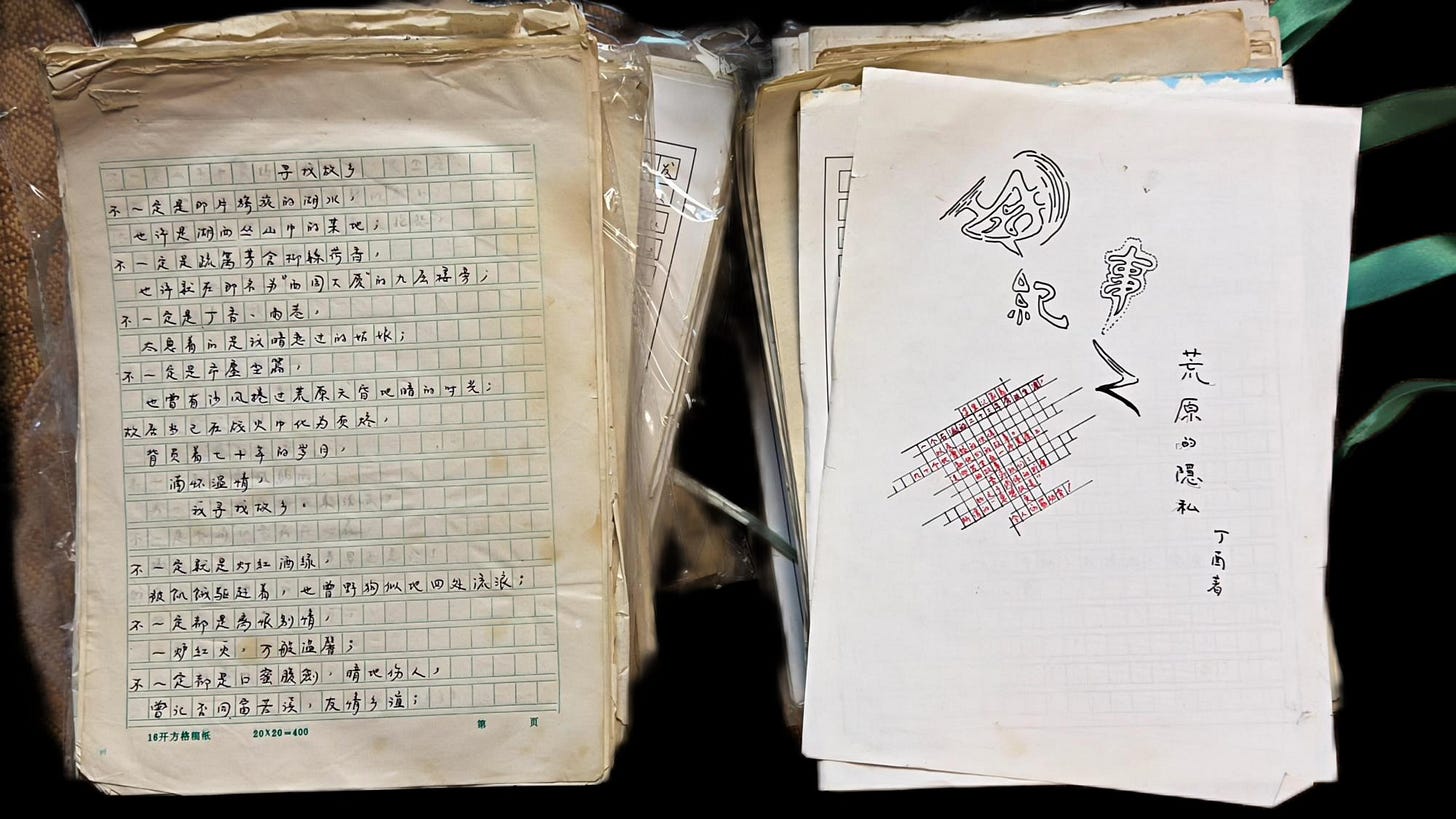 寻找故乡
不一定是那片绮旎的湖水，
也许是湖西丛山中的某地；
不一定是疏篱茅舍柳杨荷香，
也许就在那名为“西园大厦”的九层楼旁；
不一定是丁香、雨巷，
太息着的是我暗恋过的姑娘；
不一定是芦塵尘篇，
也曾有沙风掠过荒原天昏地暗的时光；
故居当已在战火中化为灰烬，
背负着七十年的岁月，
满怀温情，
我寻找故乡。
不一定就是灯红酒绿，
被饥饿驱赶着，也曾野狗似地四处流浪；
不一定都是离恨别情，
一炉红火，万般温馨；
不一定都是口蜜腹剑，暗地伤人，
曾记否同窗苦读，友情乡谊；
第 页
16开方格稿纸 20×20=400
紀
事
之
荒原的隱私
丁酉春